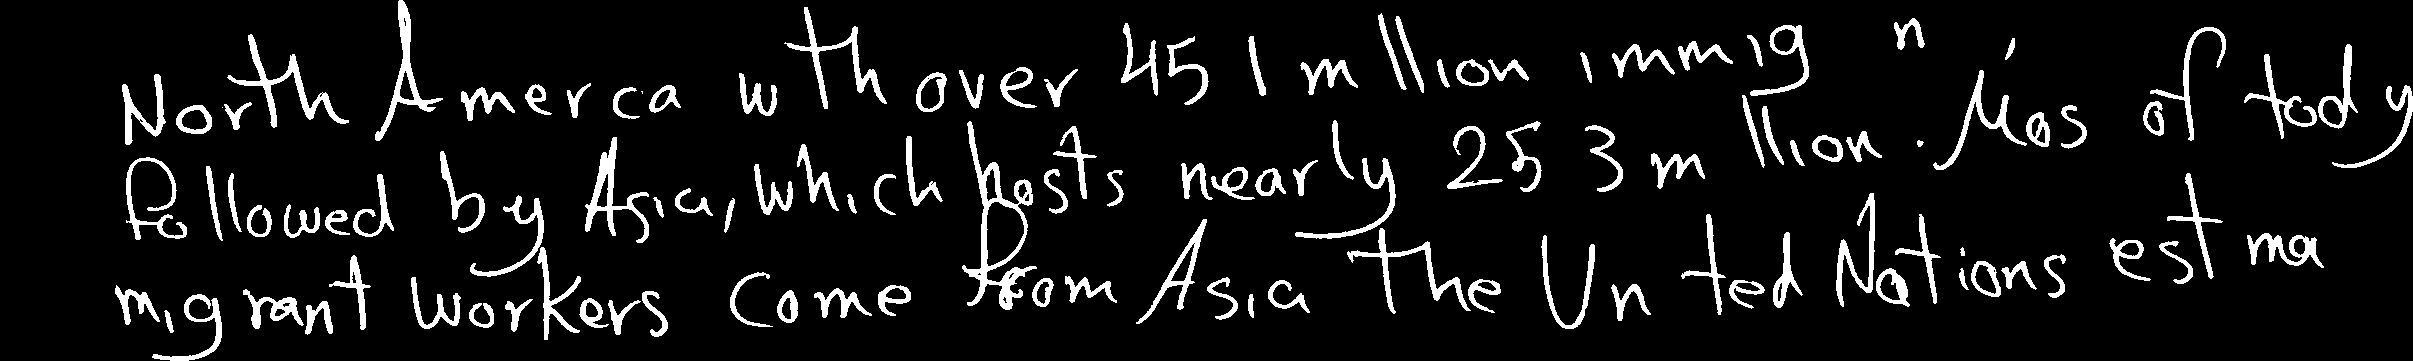 North Amerca wth over 45 1 mllion immig n
followed by Asia, which hosts nearly 25 3 m llion. Mos of tody
migrant workers come from Asia the Un ted Nations est ma